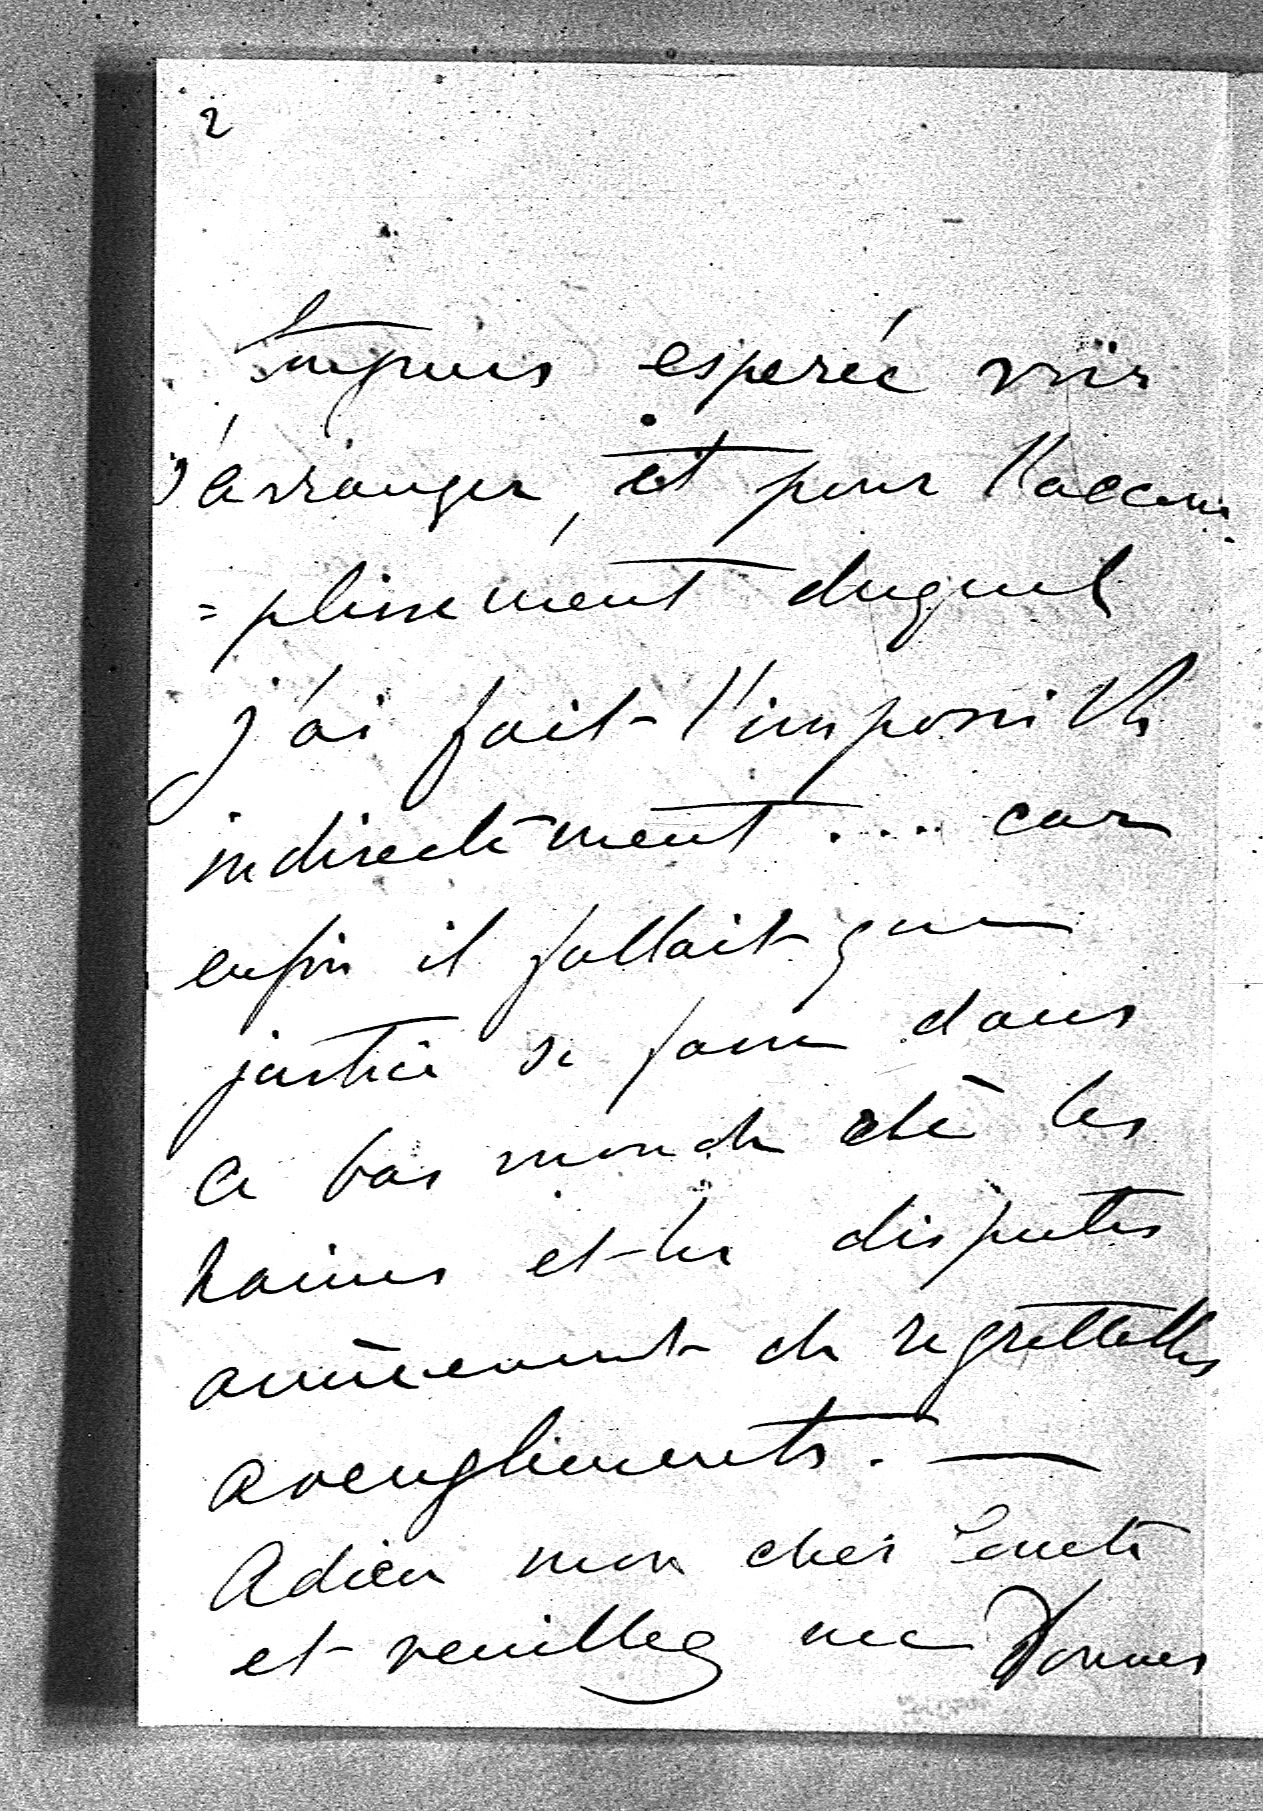 2
toujours esperée voir
s'arranger, et pour l'accom
=plissement duquel
j'ai fait l'impossible
indirectement .... car
enfin il fallait que
justice se fasse dans
ce bas monde où les
haines et les disputes
amènement de regrettables
aveuglements. —
Adieu mon cher Comte
et veuillez me donner